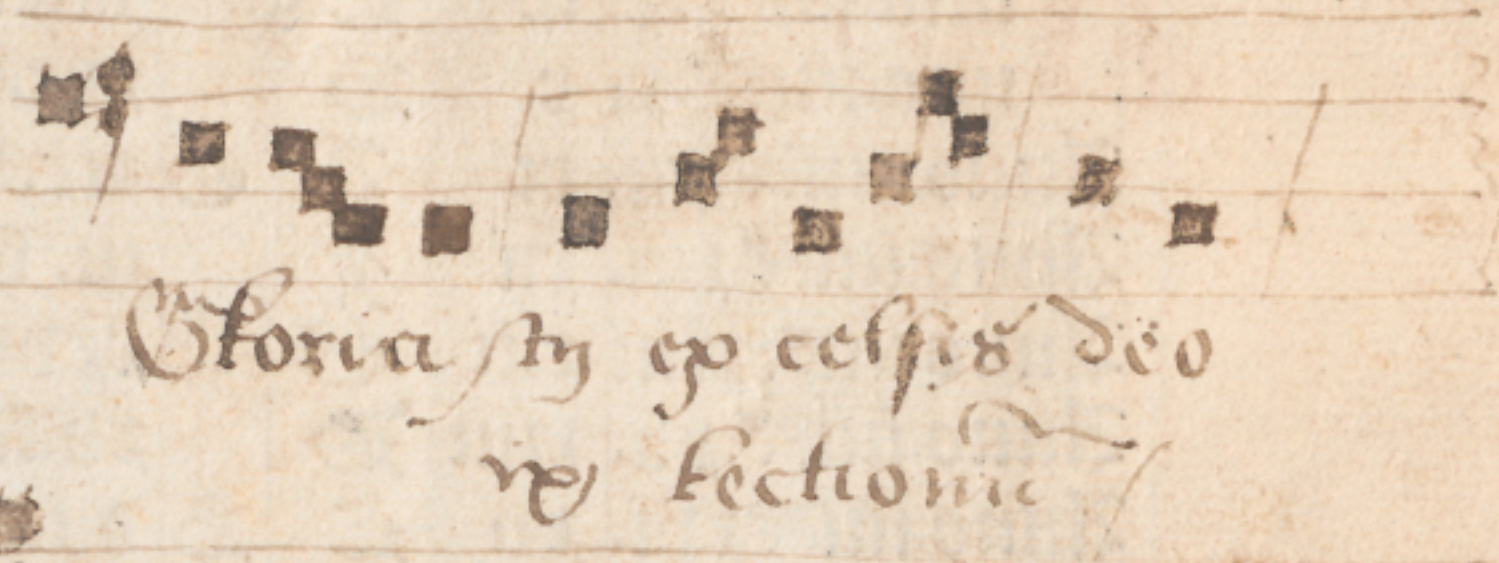 Gloria in excelsis deo
ix lectionũ